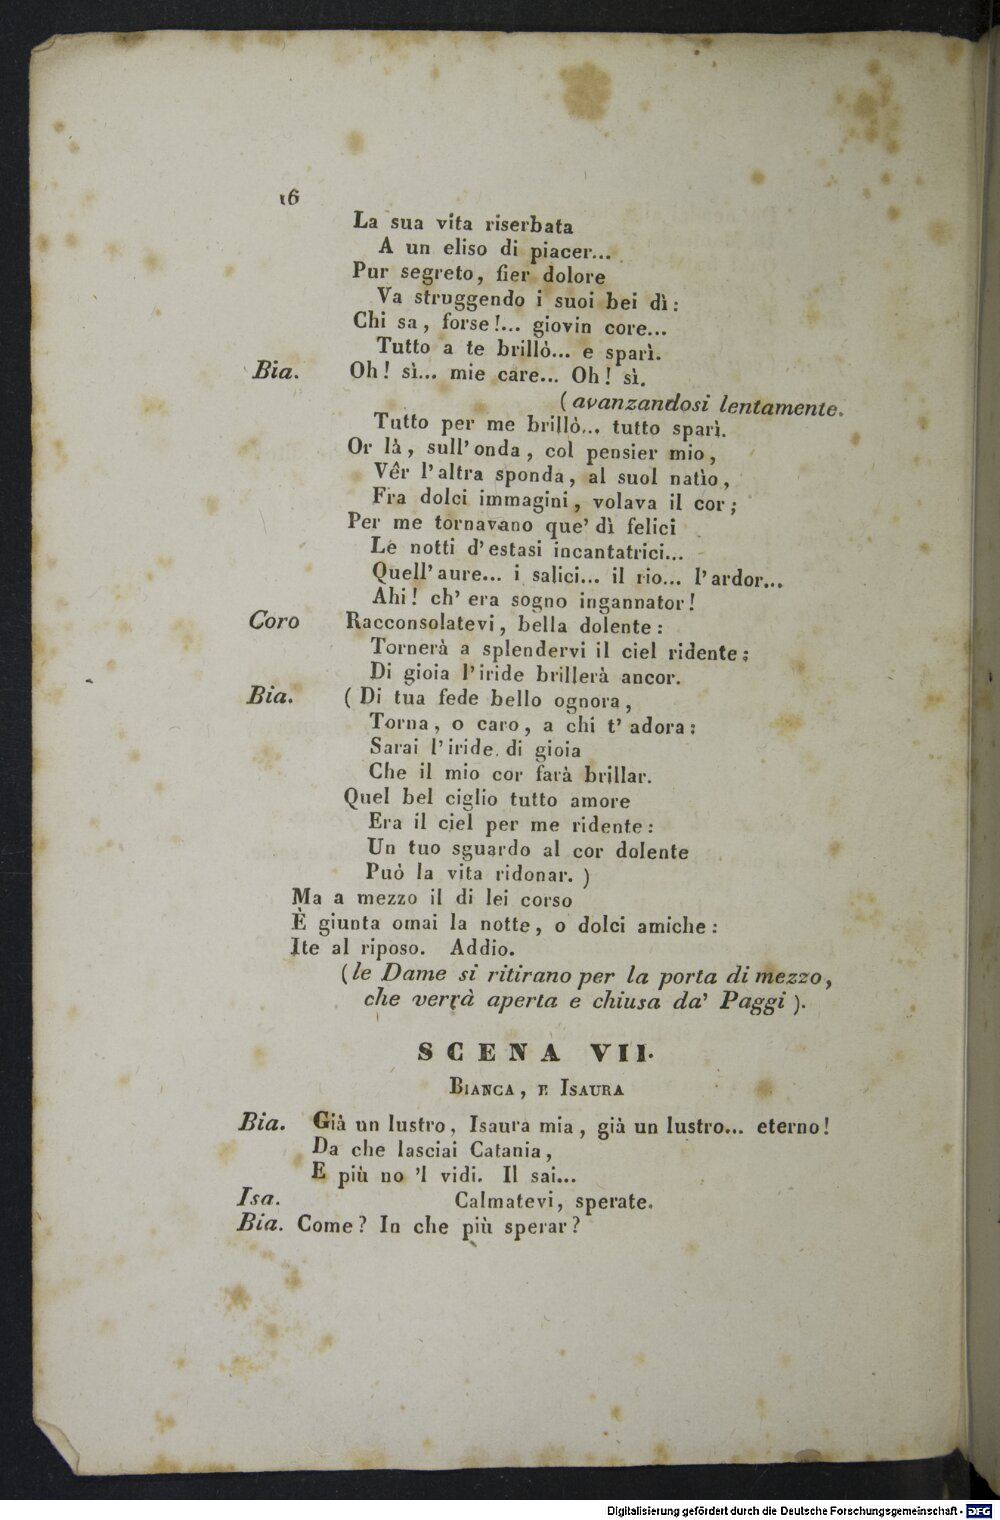 16
La sua vita riserbata
A un eliso di piacer...
Pur segreto, fier dolore
Va struggendo i suoi bei dì:
Chi sa, forse!... giovin core...
Tutto a te brillò... e sparì.
Bia. Oh! sì... mie care... Oh! sì.
(avanzandosi lentamente.
Tutto per me brillò... tutto sparì.
Or là, sull'onda, col pensier mio,
Vêr l'altra sponda, al suol natìo,
Fra dolci immagini, volava il cor;
Per me tornavano que' dì felici
Le notti d'estasi incantatrici...
Quell'aure... i salici... il rio... l'ardor...
Ahi! ch'era sogno ingannator!
Coro Racconsolatevi, bella dolente:
Tornerà a splendervi il ciel ridente;
Di gioia l'iride brillerà ancor.
Bia. (Di tua fede bello ognora,
Torna, o caro, a chi t'adora:
Sarai l'iride di gioia
Che il mio cor farà brillar.
Quel bel ciglio tutto amore
Era il ciel per me ridente:
Un tuo sguardo al cor dolente
Può la vita ridonar.)
Ma a mezzo il di lei corso
È giunta omai la notte, o dolci amiche:
Ite al riposo. Addio.
(le Dame si ritirano per la porta di mezzo,
che verrà aperta e chiusa da' Paggi).
SCENA VII.
BIANCA, E ISAURA
Bia. Già un lustro, Isaura mia, già un lustro... eterno!
Da che lasciai Catania,
E più no 'l vidi. Il sai...
Isa. Calmatevi, sperate.
Bia. Come? In che più sperar?
Digitalisierung gefördert durch die Deutsche Forschungsgemeinschaft - DFG